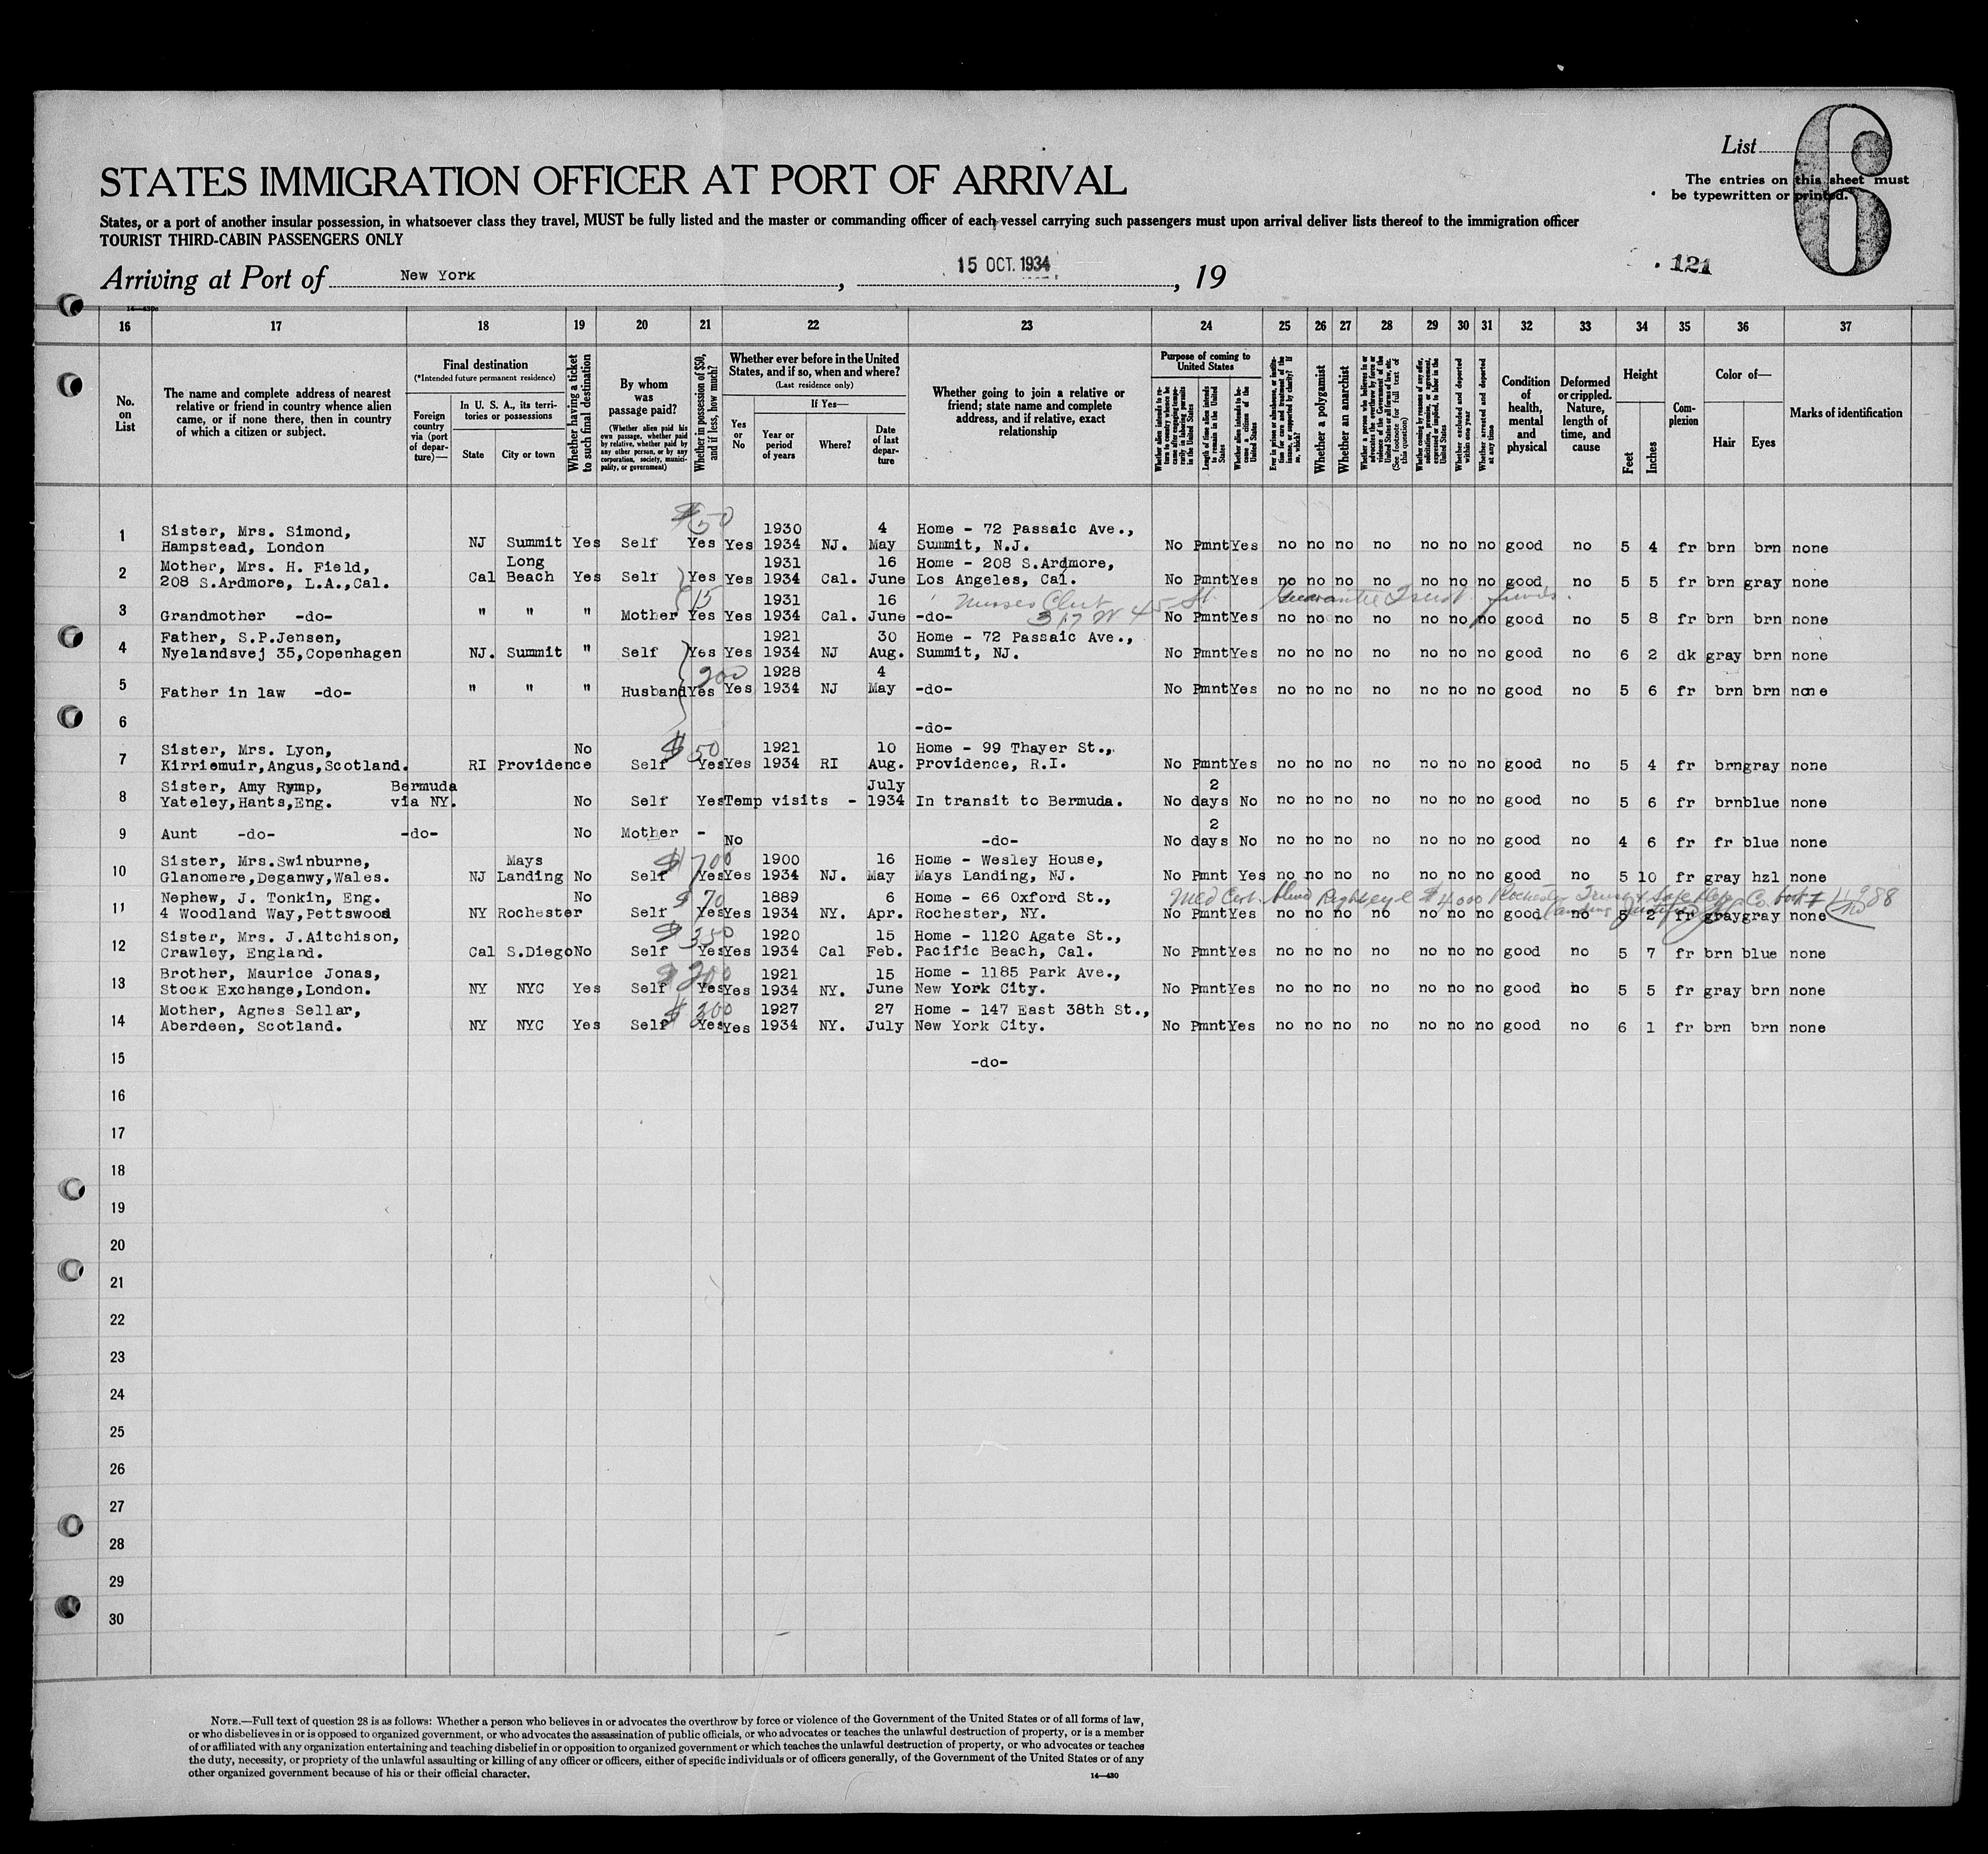 List
6
The entries on this sheet must
be typewritten or printed.
STATES IMMIGRATION OFFICER AT PORT OF ARRIVAL
States, or a port of another insular possession, in whatsoever class they travel, MUST be fully listed and the master or commanding officer of each vessel carrying such passengers must upon arrival deliver lists thereof to the immigration officer
TOURIST THIRD-CABIN PASSENGERS ONLY
Arriving at Port of New York, 15 OCT. 1934, 19
121
16 17 18 19 20 21 22 23 24 25 26 27 28 29 30 31 32 33 34 35 36 37
No. on List
The name and complete address of nearest
relative or friend in country whence alien
came, or if none there, then in country
of which a citizen or subject.
Final destination
(*Intended future permanent residence)
Foreign country via (port of departure)—
In U. S. A., its territories or possessions
State
City or town
Whether having a ticket to such final destination
By whom was passage paid?
(Whether alien paid his own passage, whether paid by relative, whether paid by any other person, or by any corporation, society, municipality, or government)
Whether in possession of $50, and if less, how much?
Whether ever before in the United States, and if so, when and where?
(Last residence only)
Yes or No
If Yes—
Year or period of years
Where?
Date of last departure
Whether going to join a relative or
friend; state name and complete
address, and if relative, exact
relationship
Purpose of coming to United States
Length of time alien intends to remain in the United States
Whether alien intends to become a citizen of the United States
Whether a polygamist
Whether an anarchist
(See footnote for full text of this question)
Whether excluded and deported within one year
Whether arrested and deported at any time
Condition of health, mental and physical
Deformed or crippled. Nature, length of time, and cause
Height
Feet
Inches
Complexion
Color of—
Hair
Eyes
Marks of identification
$50
1 Sister, Mrs. Simond, 1930 4 Home - 72 Passaic Ave.,
Hampstead, London NJ Summit Yes Self Yes Yes 1934 NJ. May Summit, N.J. No Pmnt Yes no no no no no no no good no 5 4 fr brn brn none
2 Mother, Mrs. H. Field, Long 1931 16 Home - 208 S.Ardmore,
208 S.Ardmore, L.A.,Cal. Cal Beach Yes Self Yes Yes 1934 Cal. June Los Angeles, Cal. No Pmnt Yes no no no no no no no good no 5 5 fr brn gray none
15 Nurses Club 317 W 45 St. Guarantee Trust funds.
3 1931 16
Grandmother -do- " " " Mother Yes Yes 1934 Cal. June -do- No Pmnt Yes no no no no no no no good no 5 8 fr brn brn none
4 Father, S.P.Jensen, 1921 30 Home - 72 Passaic Ave.,
Nyelandsvej 35,Copenhagen NJ. Summit " Self Yes Yes 1934 NJ Aug. Summit, NJ. No Pmnt Yes no no no no no no no good no 6 2 dk gray brn none
200
5 1928 4
Father in law -do- " " " Husband Yes Yes 1934 NJ May -do- No Pmnt Yes no no no no no no no good no 5 6 fr brn brn none
6 -do-
$50
7 Sister, Mrs. Lyon, No 1921 10 Home - 99 Thayer St.,
Kirriemuir,Angus,Scotland. RI Providence Self Yes Yes 1934 RI Aug. Providence, R.I. No Pmnt Yes no no no no no no no good no 5 4 fr brn gray none
8 Sister, Amy Rymp, Bermuda July 2
Yateley,Hants,Eng. via NY. No Self Yes Temp visits - 1934 In transit to Bermuda. No days No no no no no no no no good no 5 6 fr brn blue none
9 Aunt -do- -do- No Mother - No -do- No 2 days No no no no no no no no good no 4 6 fr fr blue none
$700
10 Sister, Mrs.Swinburne, Mays 1900 16 Home - Wesley House,
Glanomere,Deganwy,Wales. NJ Landing No Self Yes Yes 1934 NJ. May Mays Landing, NJ. No Pmnt Yes no no no no no no no good no 5 10 fr gray hzl none
$70 Med Cert. blind Right eye $4000 Rochester Trust & Safe Dep. Co. book #
11 Nephew, J. Tonkin, Eng. No 1889 6 Home - 66 Oxford St.,
4 Woodland Way,Pettswood NY Rochester Self Yes Yes 1934 NY. Apr. Rochester, NY. No Pmnt Yes no no no no no no no good no 5 2 fr gray gray none
$350
12 Sister, Mrs. J.Aitchison, 1920 15 Home - 1120 Agate St.,
Crawley, England. Cal S.Diego No Self Yes Yes 1934 Cal Feb. Pacific Beach, Cal. No Pmnt Yes no no no no no no no good no 5 7 fr brn blue none
$200
13 Brother, Maurice Jonas, 1921 15 Home - 1185 Park Ave.,
Stock Exchange,London. NY NYC Yes Self Yes Yes 1934 NY. June New York City. No Pmnt Yes no no no no no no no good no 5 5 fr gray brn none
$300
14 Mother, Agnes Sellar, 1927 27 Home - 147 East 38th St.,
Aberdeen, Scotland. NY NYC Yes Self Yes Yes 1934 NY. July New York City. No Pmnt Yes no no no no no no no good no 6 1 fr brn brn none
15 -do-
16
17
18
19
20
21
22
23
24
25
26
27
28
29
30
NOTE.—Full text of question 28 is as follows: Whether a person who believes in or advocates the overthrow by force or violence of the Government of the United States or of all forms of law,
or who disbelieves in or is opposed to organized government, or who advocates the assassination of public officials, or who advocates or teaches the unlawful destruction of property, or is a member
of or affiliated with any organization entertaining and teaching disbelief in or opposition to organized government or which teaches the unlawful destruction of property, or who advocates or teaches
the duty, necessity, or propriety of the unlawful assaulting or killing of any officer or officers, either of specific individuals or of officers generally, of the Government of the United States or of any
other organized government because of his or their official character.
14—430